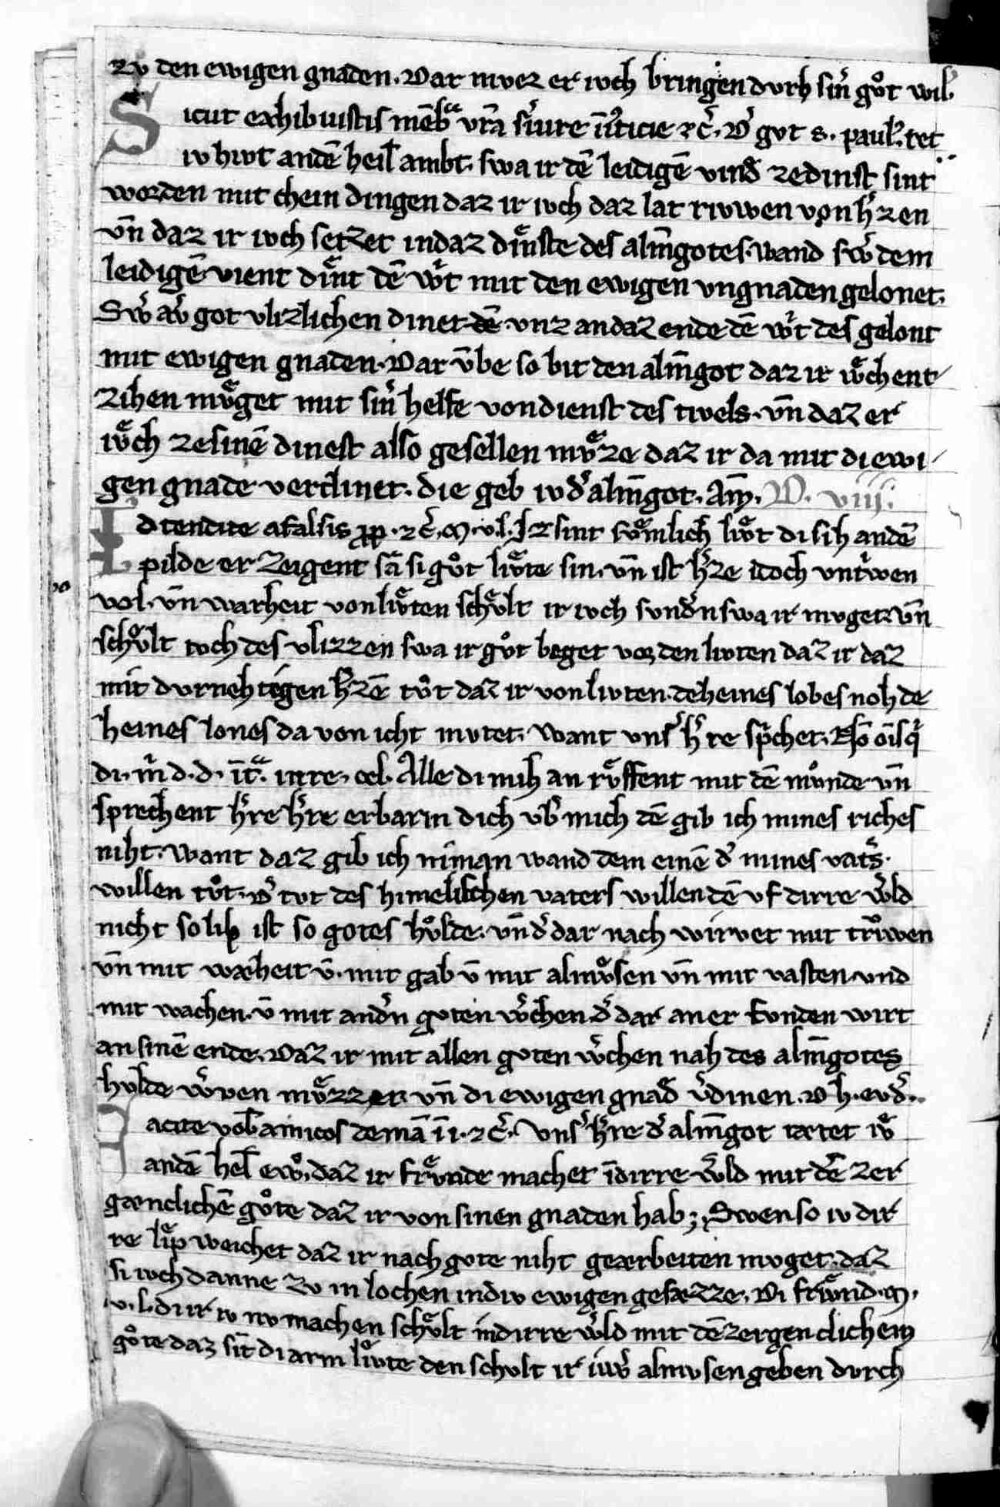 zv̊ den ewigen gnaden. Dar mvez er ivch bringen dvrh sin̄ gůt wil.
Sicut exhibuistis mēbᵃ vrā ẜuire iı̄ticie ⁊c̄. Dˀ gvt s. paul. tet
iv hivt andē heil̄ ambt. swa ir dē leidigē vind zedinst sint
worden mit chein dingen daz ir ivch daz lat rivwen von h̾zen
vn̄ daz ir ivch setzet indaz dinͤste des alm̄gotes. wand sw̾ dem
leidigē vient dinͤt dē w̾t mit den ewigen vngnaden gelonet.
Sw̾ av̾ got vlizlichen dinet dē vnz an daz ende dē w̾t des gelont
mit ewigen gnaden. Dar v̄be so bit den alm̄got daz ir iv̂ch ent
zihen mvͤget mit sin̾ helfe von dienst des tivels. vn̄ daz er
ivͤch ze sinē dinest also gesellen mvͤze daz ir da mit di ewi
gen gnade verdinet. die geb iv d̾ alm̄got. Am̄. D. viiii.
Adtendite afalsis ꝓp. ⁊c̄. M. v. l. Iz sint svͦmlich livͤt di sih andē
pilde erzeigent sā si gůt livͤte sin. vn̄ ist h̾ze idoch vntriwen
vol. vn̄ warheit von livͤten schvͤlt ir ivch svnd̾n swa ir mvget. vn̄
schvͦlt ivch des vlizzen swa ir gůt beget vor den livten daz ir daz
mit dvrnehtigen h̾zē tůt daz ir von livten deheines lobes noh de
heines lones da von icht mvtet. want vns̾ h̾re sp̾chet. Nō oı̄s q̾
di. m̾ d. d. īt̾ᵃ. in re. cel. Alle di mih an rvͤffent mit dē mvͦnde vn̄
sprechent h̾re h̾re erbarm dich vb̾ mich dē gib ich mines riches
niht. want daz gib ich niman wand dem einē d̾ mines vat̾s
willen tůt. D̾ tvt des himelischen vaters willen dē vf dirre w̾ld
nicht so lib ist so gotes hvͦlde. vn̄ d̾ dar nach wirvet mit triwͦen
vn̄ mit warheit v̄. mit gab v̄ mit almvͦsen vn̄ mit vasten. vnd
mit wachen. v̄ mit and̾n goten w̾chen d̾ dar an er fvnden wirt
an sinē ende. Daz ir mit allen goten w̾chen nah des alm̄gotes
hvlde w̾ven mvͤzzet. vn̄ di ewigen gnad v̾dinen. D h. evd̾.
Facite vob̄ amicos demā īi. ⁊c̄. Vns̾ h̾re d̾ alm̄got rætet ivͤ
andē hel̄ ewͦ. daz ir frivͤnde machet īdirre w̾ld mit dē zer
gænclichē gůte daz ir von sinen gnaden hab;. Swenso iv dir
re lip weichet daz ir nach gote niht gearbeiten mvget. daz
si ivch danne zv in lochen in div ewigen gesæzze. Di frivͤnd. M.
v. l. di ir iv nv machen schvͤlt in dirre w̾ld mit dē zergenclichem
gůte daz sīt di arm livͦte den schvlt ir iiw̾ almvsen geben dvrch